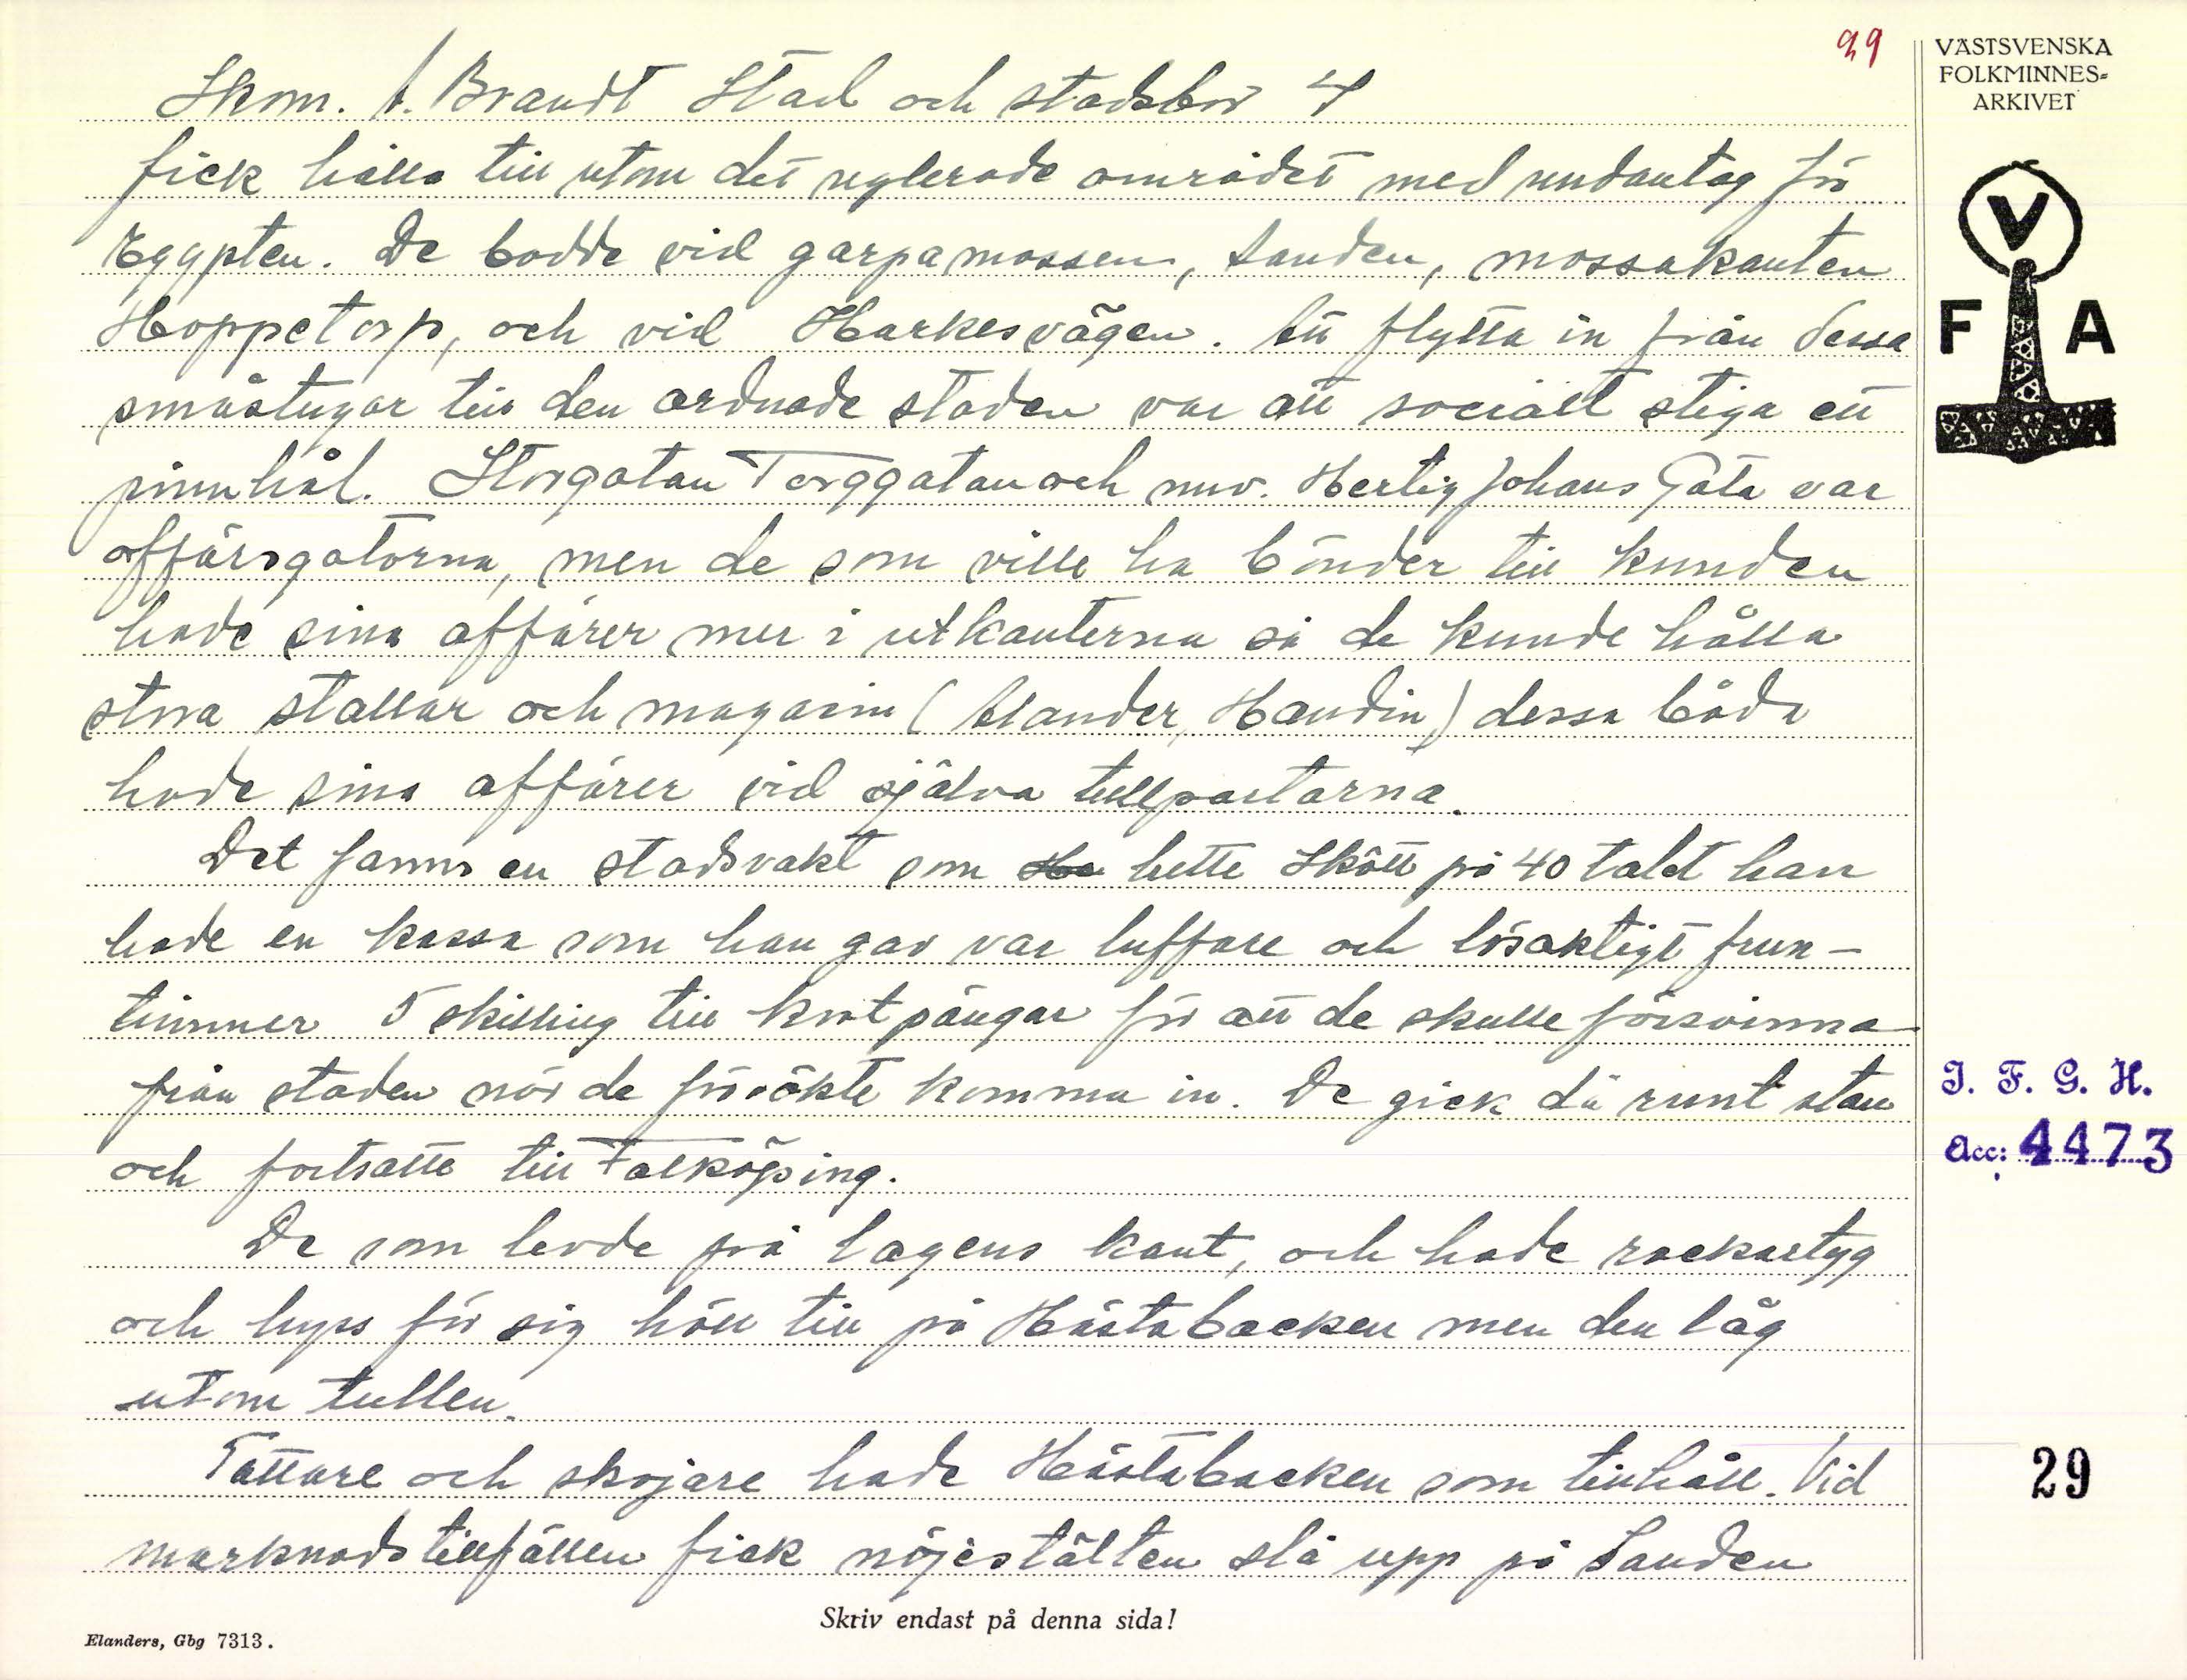 29
VÄSTSVENSKA
FOLKMINNES=
ARKIVET
V
F A
Skm. A. Brandt Stad och stadsbor 4
fick hålla till utom det reglerade området med undantag för
Egypten. De bodde vid garpamossen, Sanden, mossakanten
Hoppetorp, och vid Harkesvägen. Att flytta in från dessa
småstugor till den ordnade staden var att socialt stiga ett
pinnhål. Storgatan Torggatan och nuv. Hertig Johans Gata var
affärsgatorna, men de som ville ha bönder till kunden
hade sina affärer mer i utkanterna så de kunde hålla
stora stallar och magasin (Elander, Handin) dessa båda
hade sina affärer vid själva tullportarna.
Det fanns en stadsvakt som hette Skött på 40 talet han
hade en kassa som han gav var luffare och lösaktigt frun-
timmer 5 skilling till knotpängar för att de skulle försvinna
från staden när de försökte komma in. De gick då runt stan
och fortsatte till Falköping.
De som levde på lagens kant, och hade rackartyg
och hyss för sig höll till på Hästabacken men den låg
utom tullen.
Tattare och skojare hade Hästabacken som tillhåll. Vid
marknadstillfällen fick nöjestälten slå upp på Sanden
I. F. G. H.
Acc: 4473
29
Skriv endast på denna sida!
Elanders, Gbg 7313.